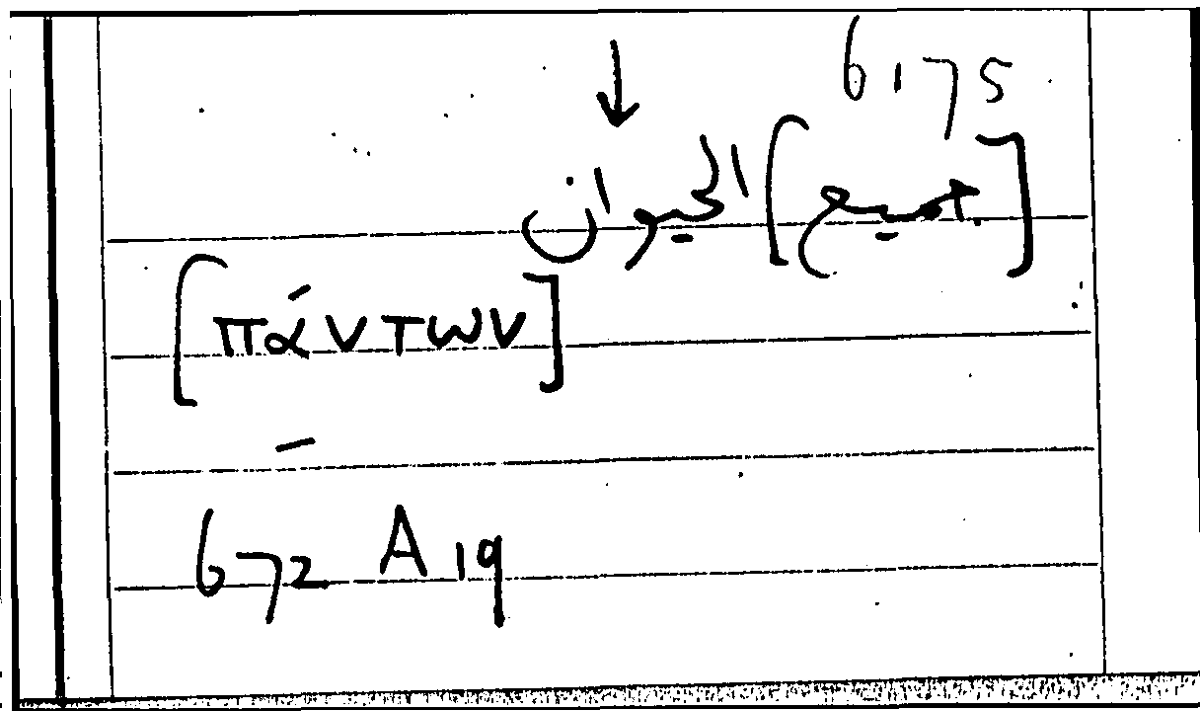 ↓
6,75
[جميع] الحيوان
[πάντων]
–
672 A 19